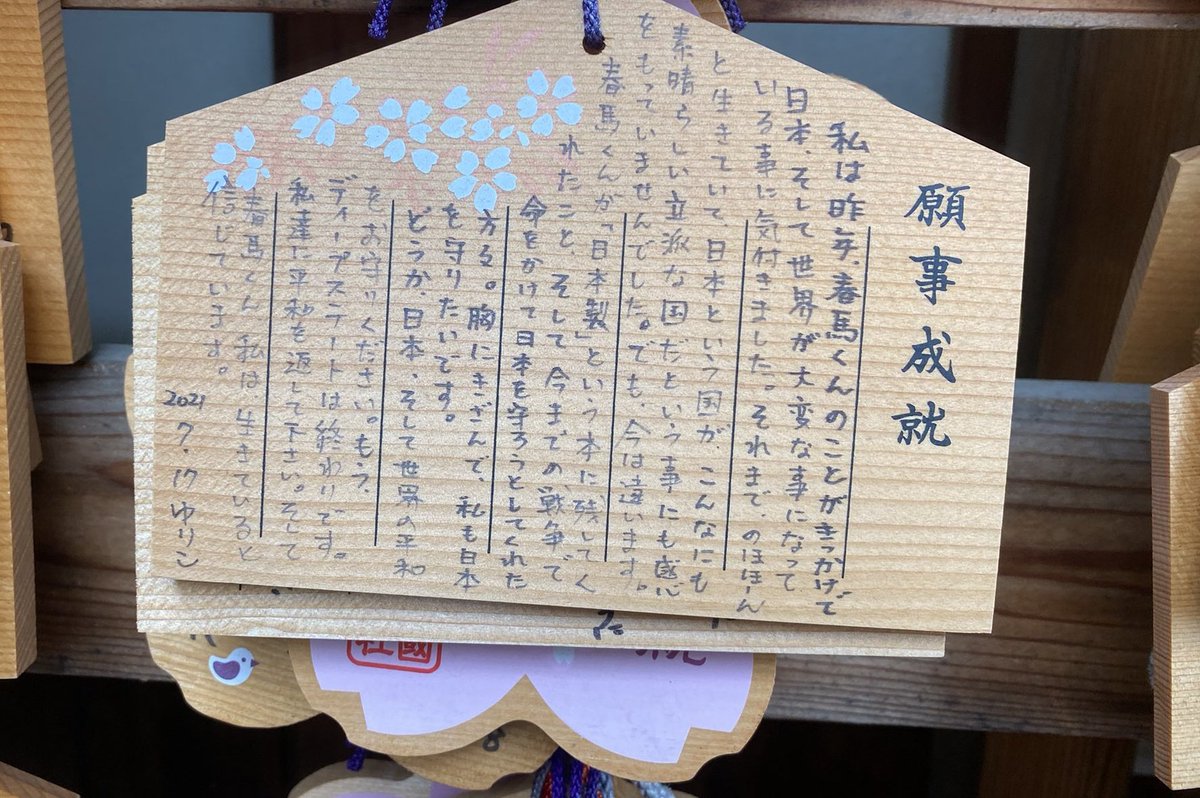 願事成就
私は昨年、春馬くんのことがきっかけで
日本、そして世界が大変な事になって
いる事に気付きました。それまで、のほほーん
と生きていて、日本という国が、こんなにも
素晴らしい立派な国だという事にも感心
をもっていませんでした。でも、今は違います。
春馬くんが「日本製」という本に残してく
れたこと、そして今までの戦争で
命をかけて日本を守ろうとしてくれた
方々。胸にきざんで、私も日本
を守りたいです。
どうか、日本、そして世界の平和
をお守りください。もう、
ディープステートは終わりです。
私達に平和を返して下さい。そして
春馬くん 私は、生きていると
信じています
2021 7.17 ゆりこ